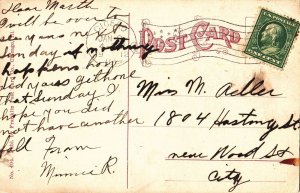 Dear Marth
I will be over to
see you's n
Sunday if nothing
happens how
did you's get home
that Sunday I
hope you did
not have another
fall From
Minnie R.
POST CARD
Miss M. Adler
1804 Hastings St
near Wood St
City